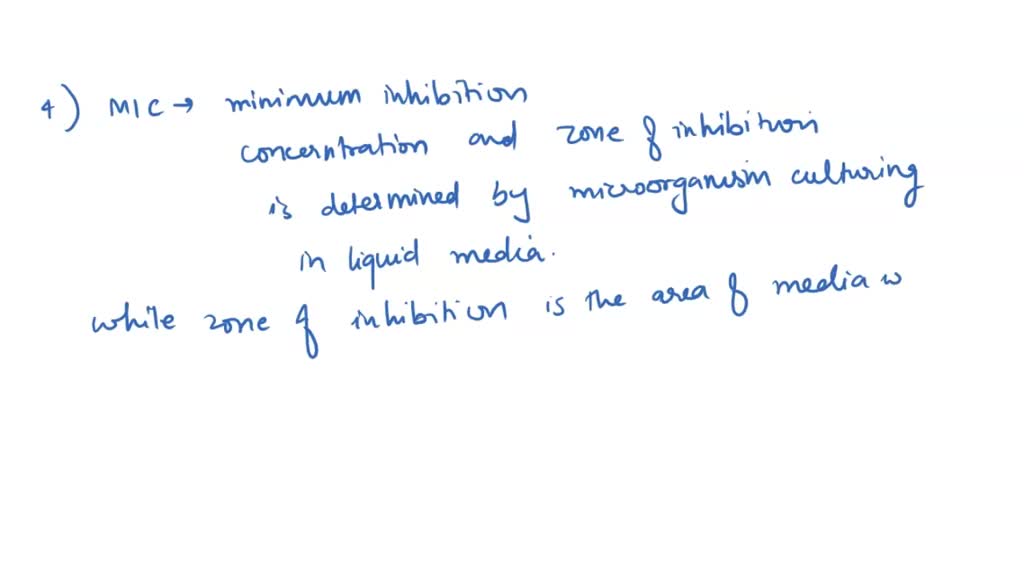 4) MIC → minimum inhibition
concerntration and zone of inhibition
is determined by microorganism culturing
in liquid media.
while zone of inhibition is the area of media w